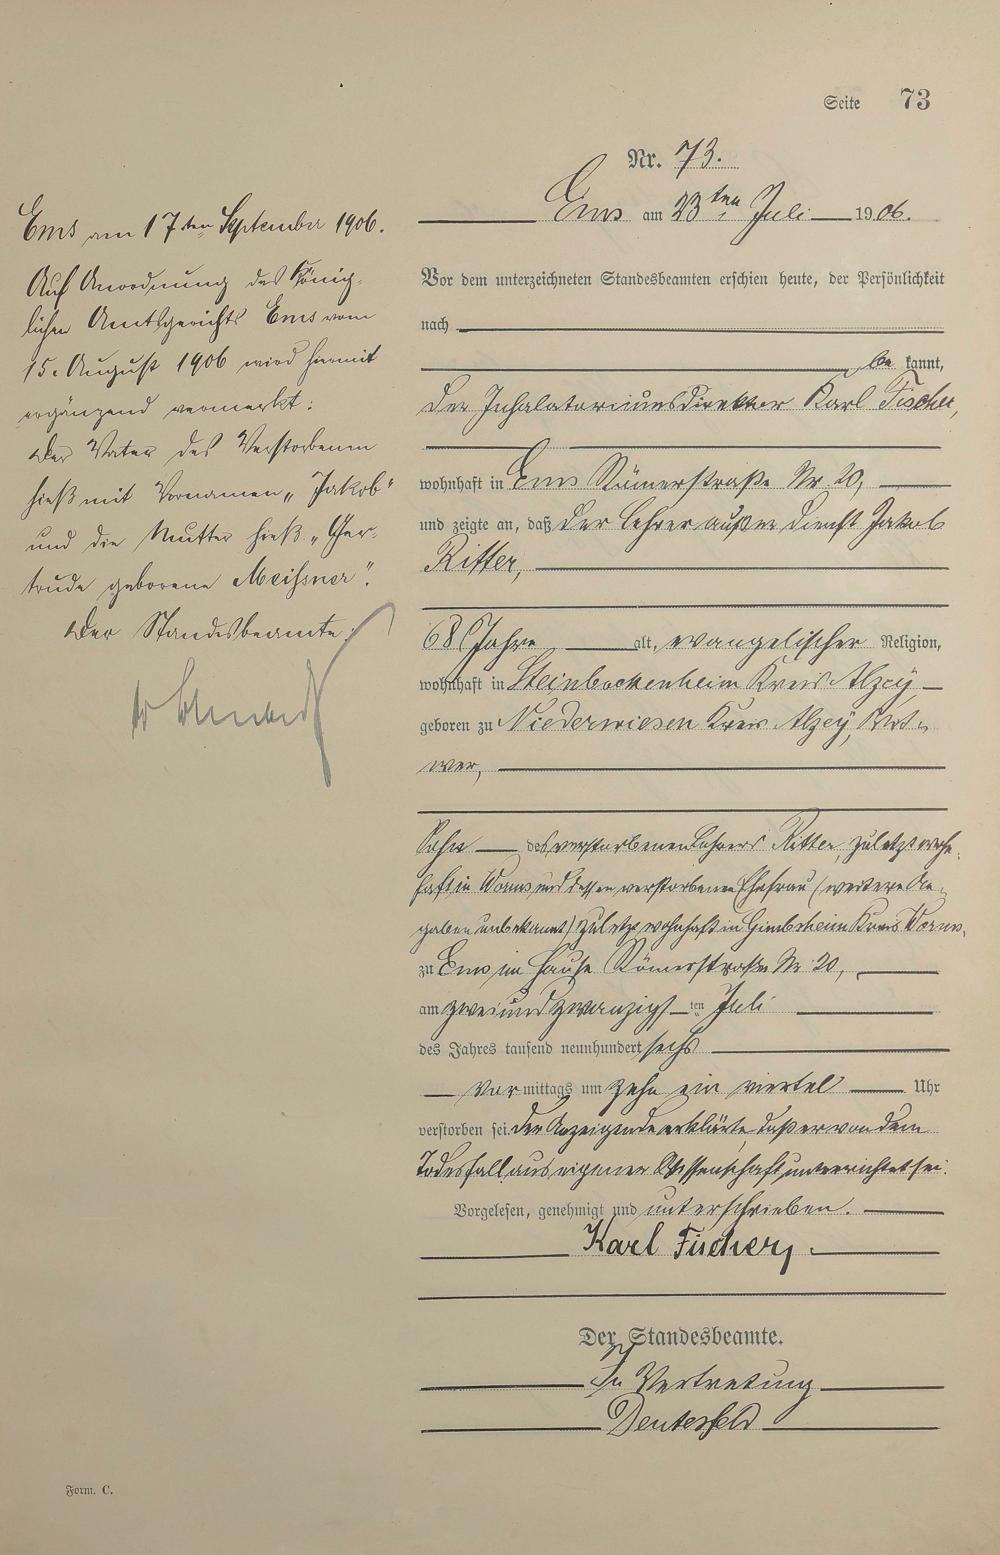 Seite 73
Nr. 73.
Ems am 23ten Juli 1906.
Vor dem unterzeichneten Standesbeamten erschien heute, der Persönlichkeit
nach
be kannt,
der Inhalatoriumsdirektor Karl Fischer,
wohnhaft in Ems Römerstraße Nr 20,
und zeigte an, daß der Lehrer außer Dienst Jakob
Ritter,
68 Jahre alt, evangelischer Religion,
wohnhaft in Steinbockenheim Kreis Alzey
geboren zu Niederwiesen Kreis Alzey, Wit-
wer,
Sohn des verstorbenen Lehrers Ritter, zuletzt wohn-
haft in Worms und dessen verstorbenen Ehefrau (weitere An-
gaben unbekannt) zuletzt wohnhaft in Gimbsheim Kreis Worms,
zu Ems im Hause Römerstraße Nr 20,
am zweiundzwanzigsten Juli
des Jahres tausend neunhundert sechs
Vor mittags um zehn ein viertel Uhr
verstorben sei. Der Anzeigende erklärte, daß er von dem
Todesfall aus eigener Wissenschaft unterrichtet sei.
Vorgelesen, genehmigt und unterschrieben.
Karl Fischer,
Der Standesbeamte.
In Vertretung
Deutesfeld
Ems am 17ten September 1906.
Auf Anordnung des König-
lichen Amtsgerichts Ems vom
15. August 1906 wird hiermit
ergänzend vermerkt:
Der Vater des Verstorbenen
hieß mit Vornamen „Jakob“
und die Mutter hieß „Ger-
trude geborene Meißner“.
Der Standesbeamte:
Form. C.